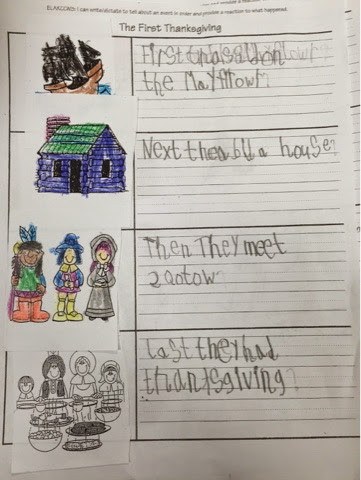 ELAKCCW3: I can write/dictate to tell about an event in order and provide a reaction to what happened.
The First Thanksgiving
First
the Mayflowr
Next a house
Then They meet
Last they had
thanksgiving